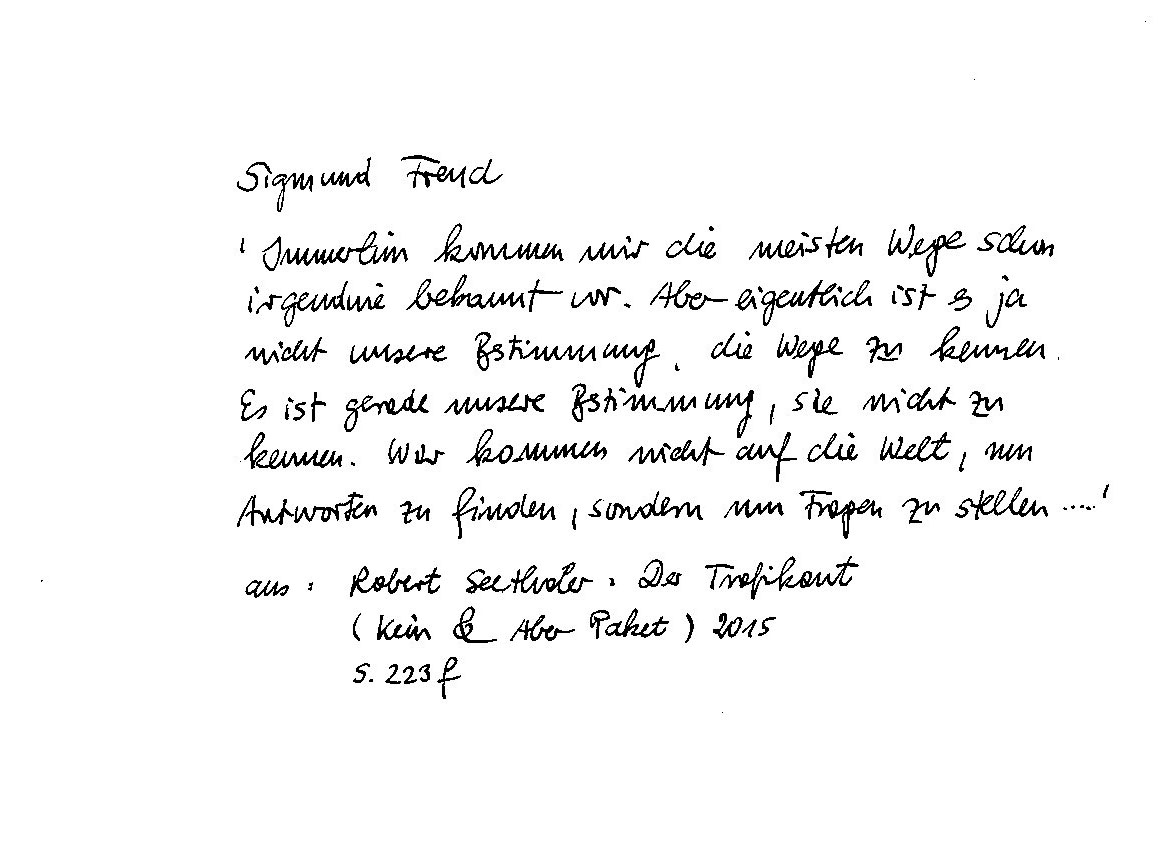 Sigmund Freud
' Immerhin kommen mir die meisten Wege schon
irgendwie bekannt vor. Aber eigentlich ist es ja
nicht unsere Bestimmung, die Wege zu kennen.
Es ist gerade unsere Bestimmung, sie nicht zu
kennen. Wir kommen nicht auf die Welt, um
Antworten zu finden, sondern um Fragen zu stellen .....'
aus : Robert Seethaler. Der Trafikant
( Kein & Aber Paket ) 2015
S. 223 f